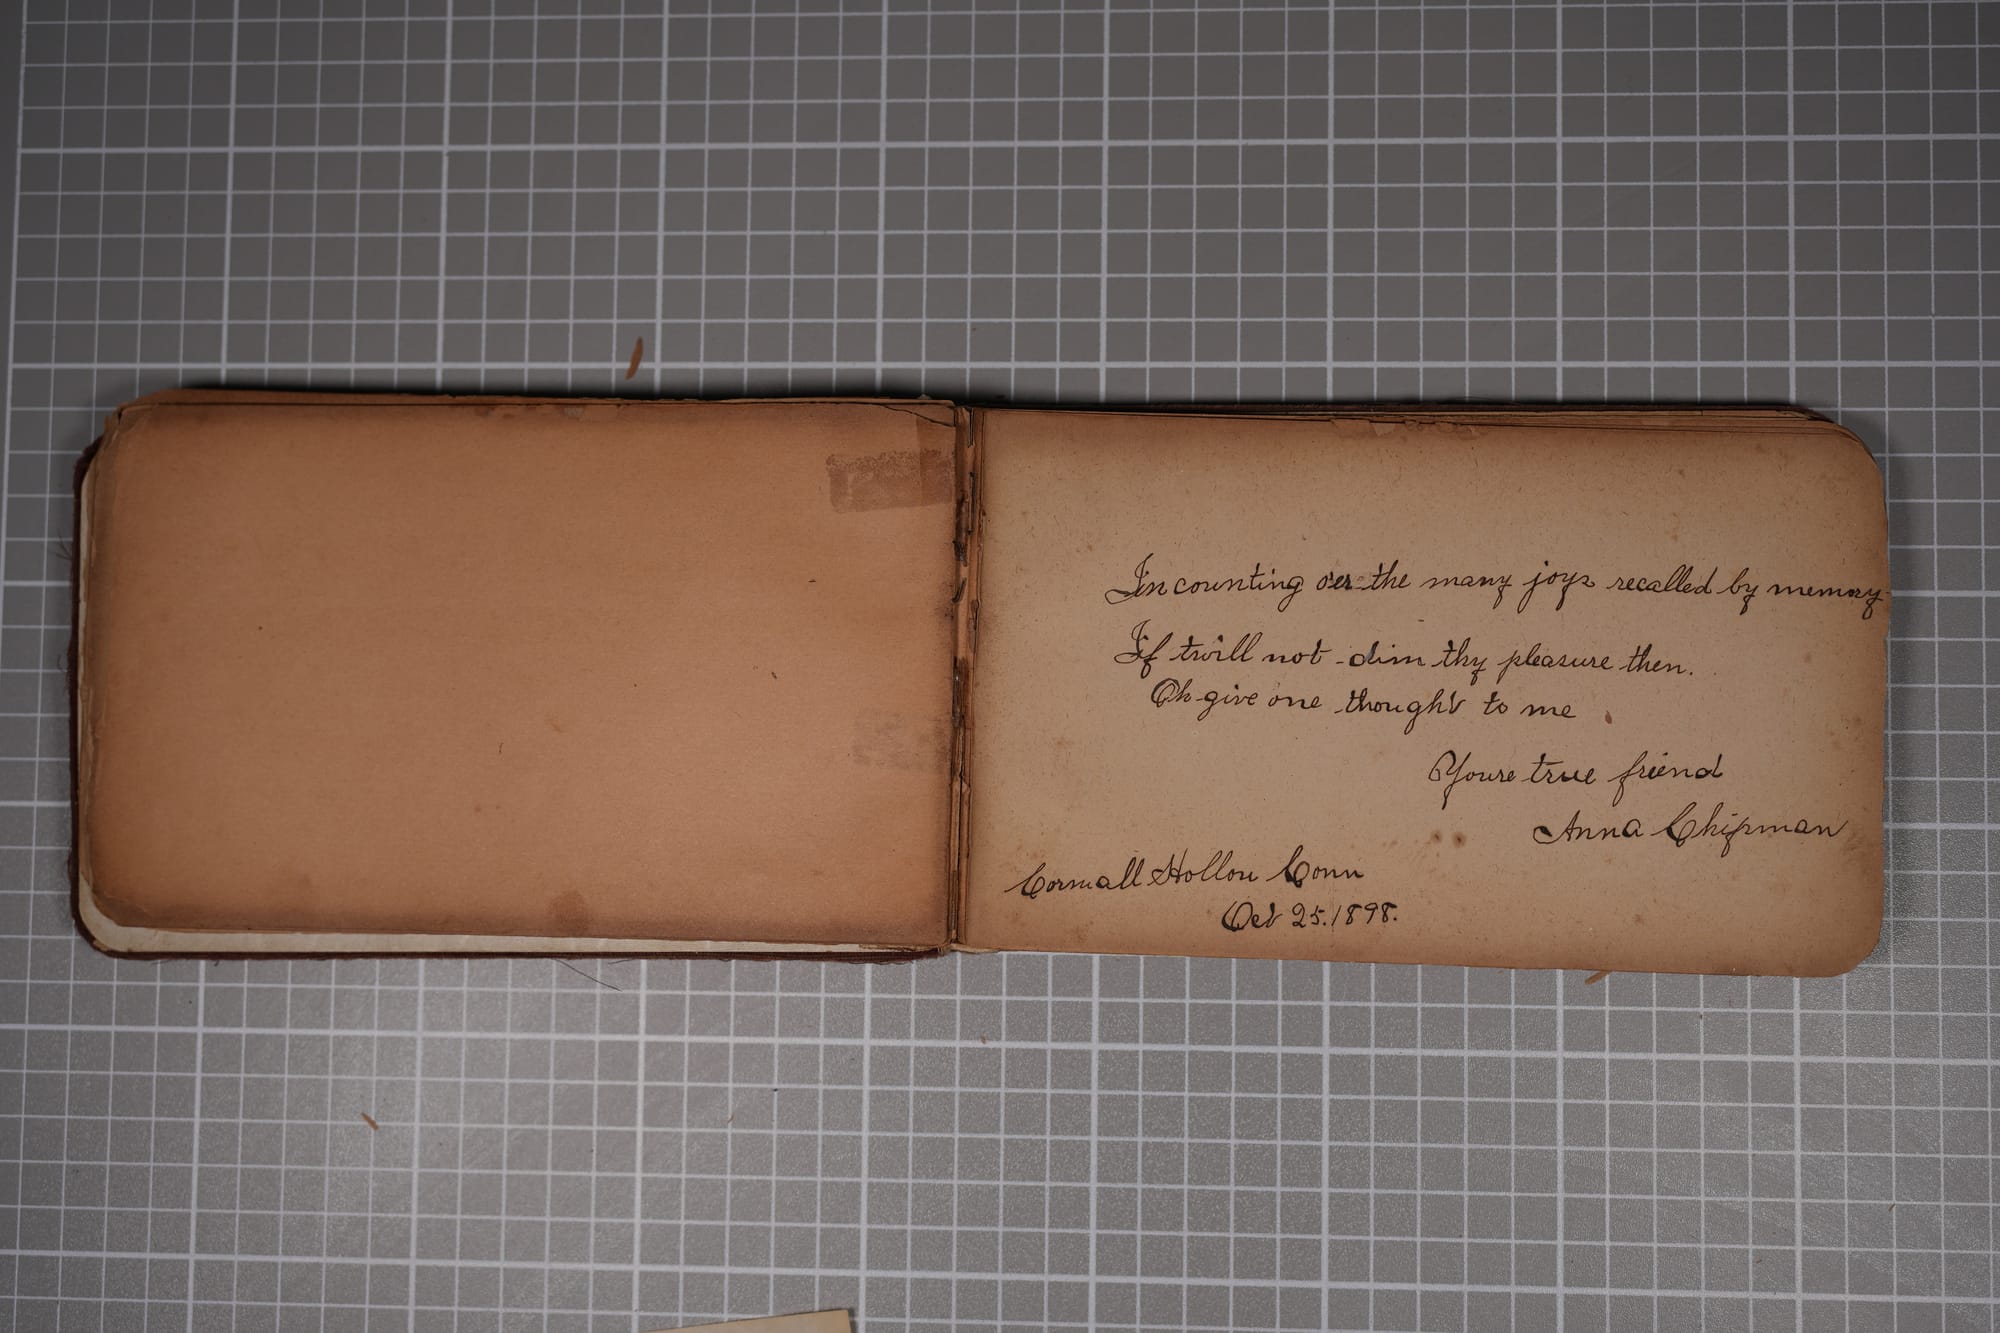 In counting o'er the many joys recalled by memory
If twill not dim thy pleasure then.
Oh give one thought to me
Youre true friend
Anna Chipman
Cornwall Hollow Conn
Oct 25. 1898.